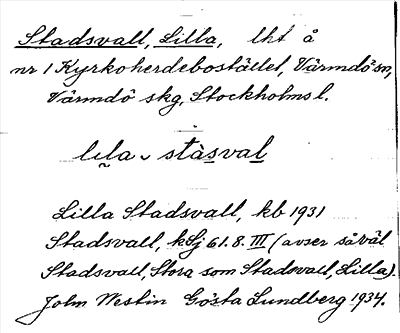 Stadsvall, Lilla, lht å
nr 1 Kyrkoherdebostället, Värmdö sn,
Värmdö skg, Stockholms l.
lıla stàsval
Lilla Stadsvall, kb 1931
Stadsvall, kSj 61.8. III (avser såväl
Stadsvall, Stora som Stadsvall, Lilla).
John Westin Gösta Lundberg 1934.